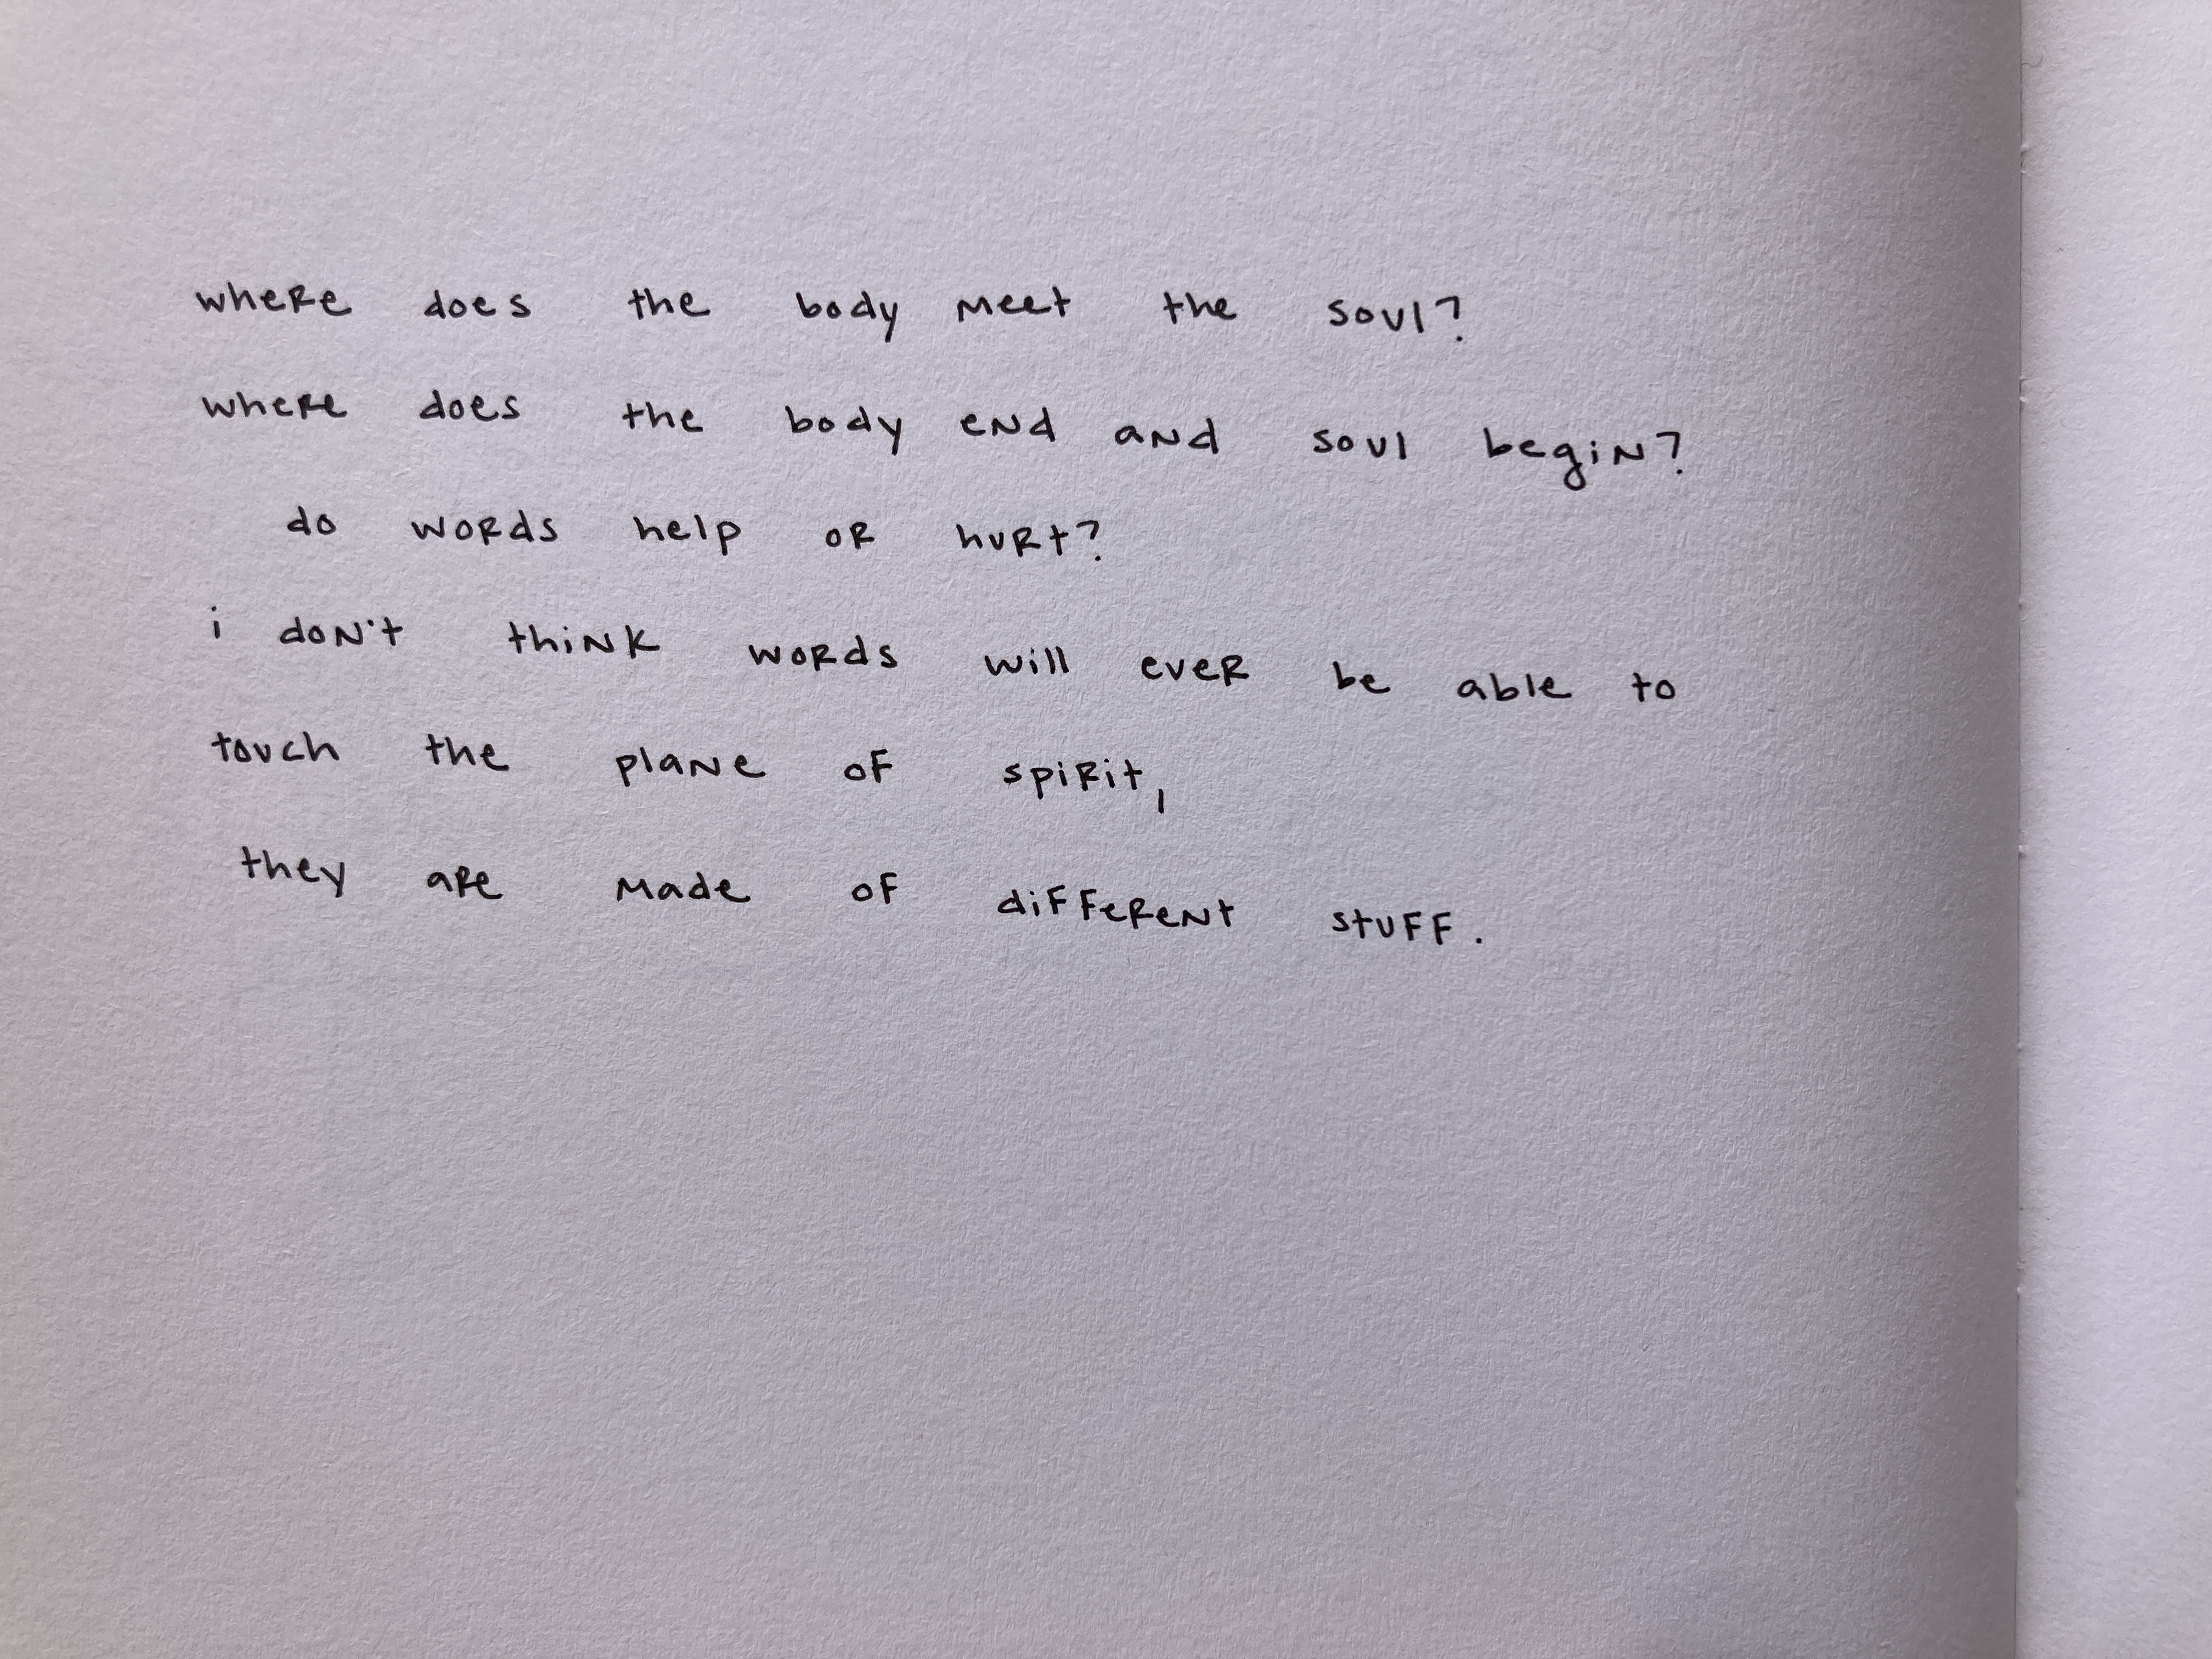 where does the body meet the soul?
where does the body end and soul begin?
do words help or hurt?
i don't think words will ever be able to
touch the plane of spirit,
they are made of different stuff.